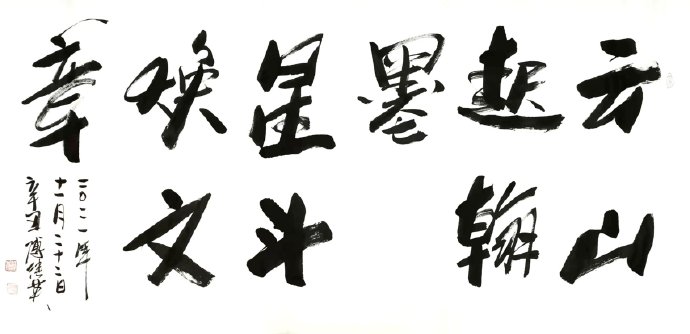 云山
起翰
墨
星斗
焕文
章
二〇二一年
十一月二十二日
辛丑